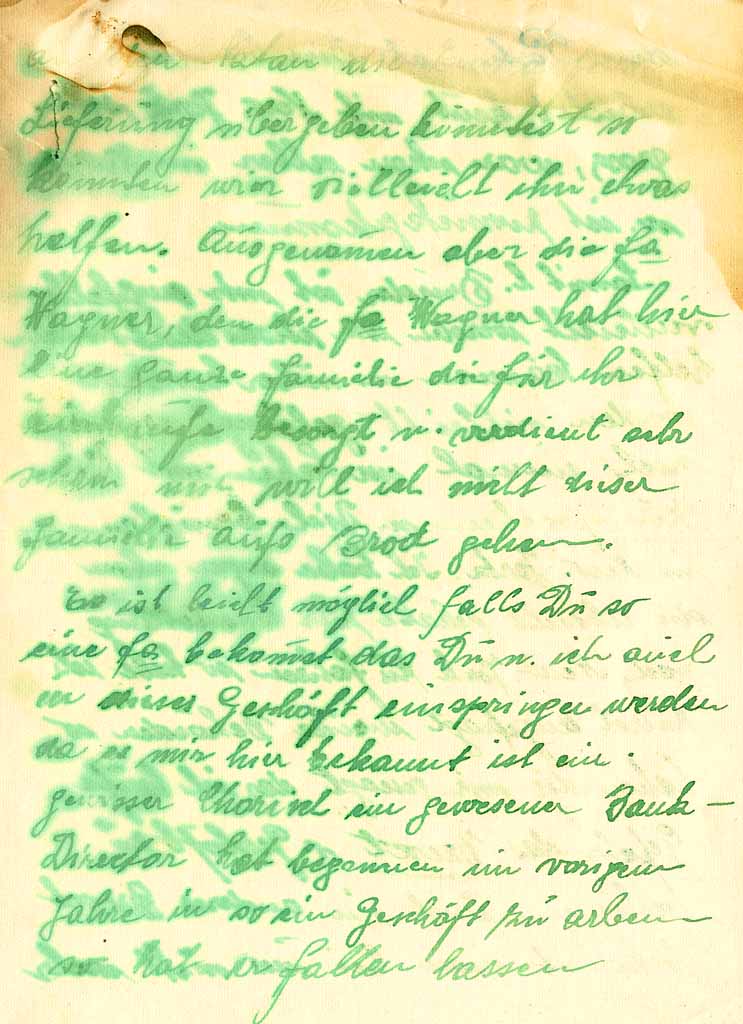 Lieferung übergeben kön̄test so
kön̄ten wier vielleicht ihn etwas
helfen. Ausgenom̄en aber die Fa
Wagner, den die Fa Wagner hat hier
eine ganze Familie die für ihr
besorgt u. verdient sehr
schön und will ich nicht dieser
Familie aufs Brod gehen.
Es ist leicht möglich falls Du so
eine Fa bekom̄st das Du u. ich auch
in dieses Geschäft einspringen werden
da es mir hier bekannt ist ein
gewisser ein gewesener Bank-
Director hat begonnen im vorigem
Jahre in so ein Geschäft zu arben
so hat er fallen lassen